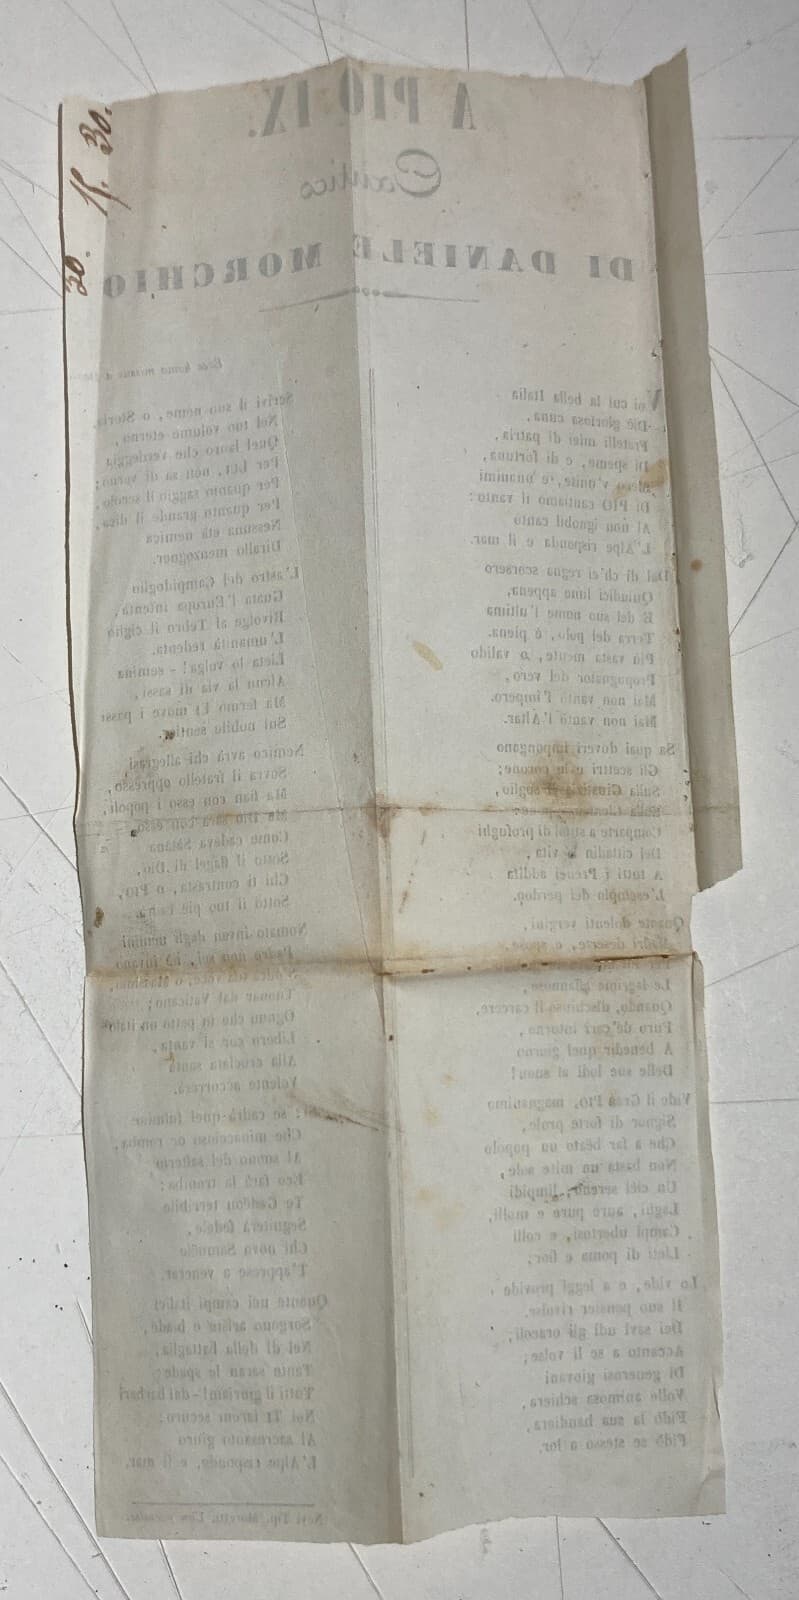 A PIO IX.
Cantico
DI DANIELE MORCHIO
Voi cui la bella Italia
Diè gloriosa cuna,
Fratelli miei di patria,
Di speme, e di fortuna,
Meco v'unite, e unanimi
Di PIO cantiamo il vanto:
Al non ignobil canto
L'Alpe risponda e il mar.
Dal dì ch'ei regna scorsero
Quindici lune appena,
E del suo nome l'ultima
Terra del polo, è piena.
Più vasta mente, o valido
Propugnator del vero,
Mai non vantò l'impero,
Mai non vantò l'Altar.
Sa quai doveri impongano
Gli scettri e le corone;
Sulla Giustizia il soglio,
Sulla
Comparte a stuol di profughi
Del cittadin la vita,
A tutti i Prenci addita
L'esempio del perdon.
Quante dolenti vergini,
Madri deserte, e spose
Le lagrime affannose,
Quando, dischiuso il carcere,
Furo de' cari intorno,
A benedir quel giorno
Delle sue lodi al suon!
Vide il Gran PIO, magnanimo
Signor di forte prole,
Che a far bëato un popolo
Non basta un mite sole,
Un ciel sereno, limpidi
Laghi, aure pure e molli,
Campi ubertosi, e colli
Lieti di poma e fior;
Lo vide, e a leggi provide
Il suo pensier rivolse.
Dei savi udì gli oracoli,
Accanto a se li volse;
Di generosi giovani
Volle animosa schiera,
Fidò la sua bandiera,
Fidò se stesso a lor.
Scrivi il suo nome, o Storia,
Nel tuo volume eterno,
Quel lauro che verdeggia
Per LUI, non sa di verno;
Per quanto raggio il secolo,
Per quanto grande il dica,
Nessuna età nemica
Dirallo menzogner.
L'astro del Campidoglio
Guata l'Europa intenta,
Rivolge al Tebro il ciglio
L'umanità redenta.
Lieta lo volga! - semina
Alcun la via di sassi,
Ma fermo EI move i passi
Sul nobile sentier.
Nemico avrà chi allegrasi
Sovra il fratello oppresso,
Ma fian con esso i popoli,
Ma Dio sarà con esso.
Come cadeva Sàtana
Sotto il flagel di Dio,
Chi ti contrasta, o PIO,
Sotto il tuo piè
Nomato invan degli uomini
Padre non sei, nè invano
Tuonar dal Vaticano;
Ognun che in petto un italo
Libero cor si vanta,
Alla crociata santa
Volente accorrerà.
Sì; se cadrà quel fulmine
Che minaccioso or romba,
Al suono del salterio
Eco farà la tromba;
Te Gedëon terribile
Seguiterà fedele,
Chi novo Samuële
T'apprese a venerar.
Quante nei campi italici
Sorgono ariste e biade,
Nel dì della battaglia,
Tante saran le spade;
Tutti il giuriam! - dai barbari
Noi TI farem securo;
Al sacrosanto giuro
L'Alpe risponde, e il mar.
Novi Tip. Moretti. Con permiss.